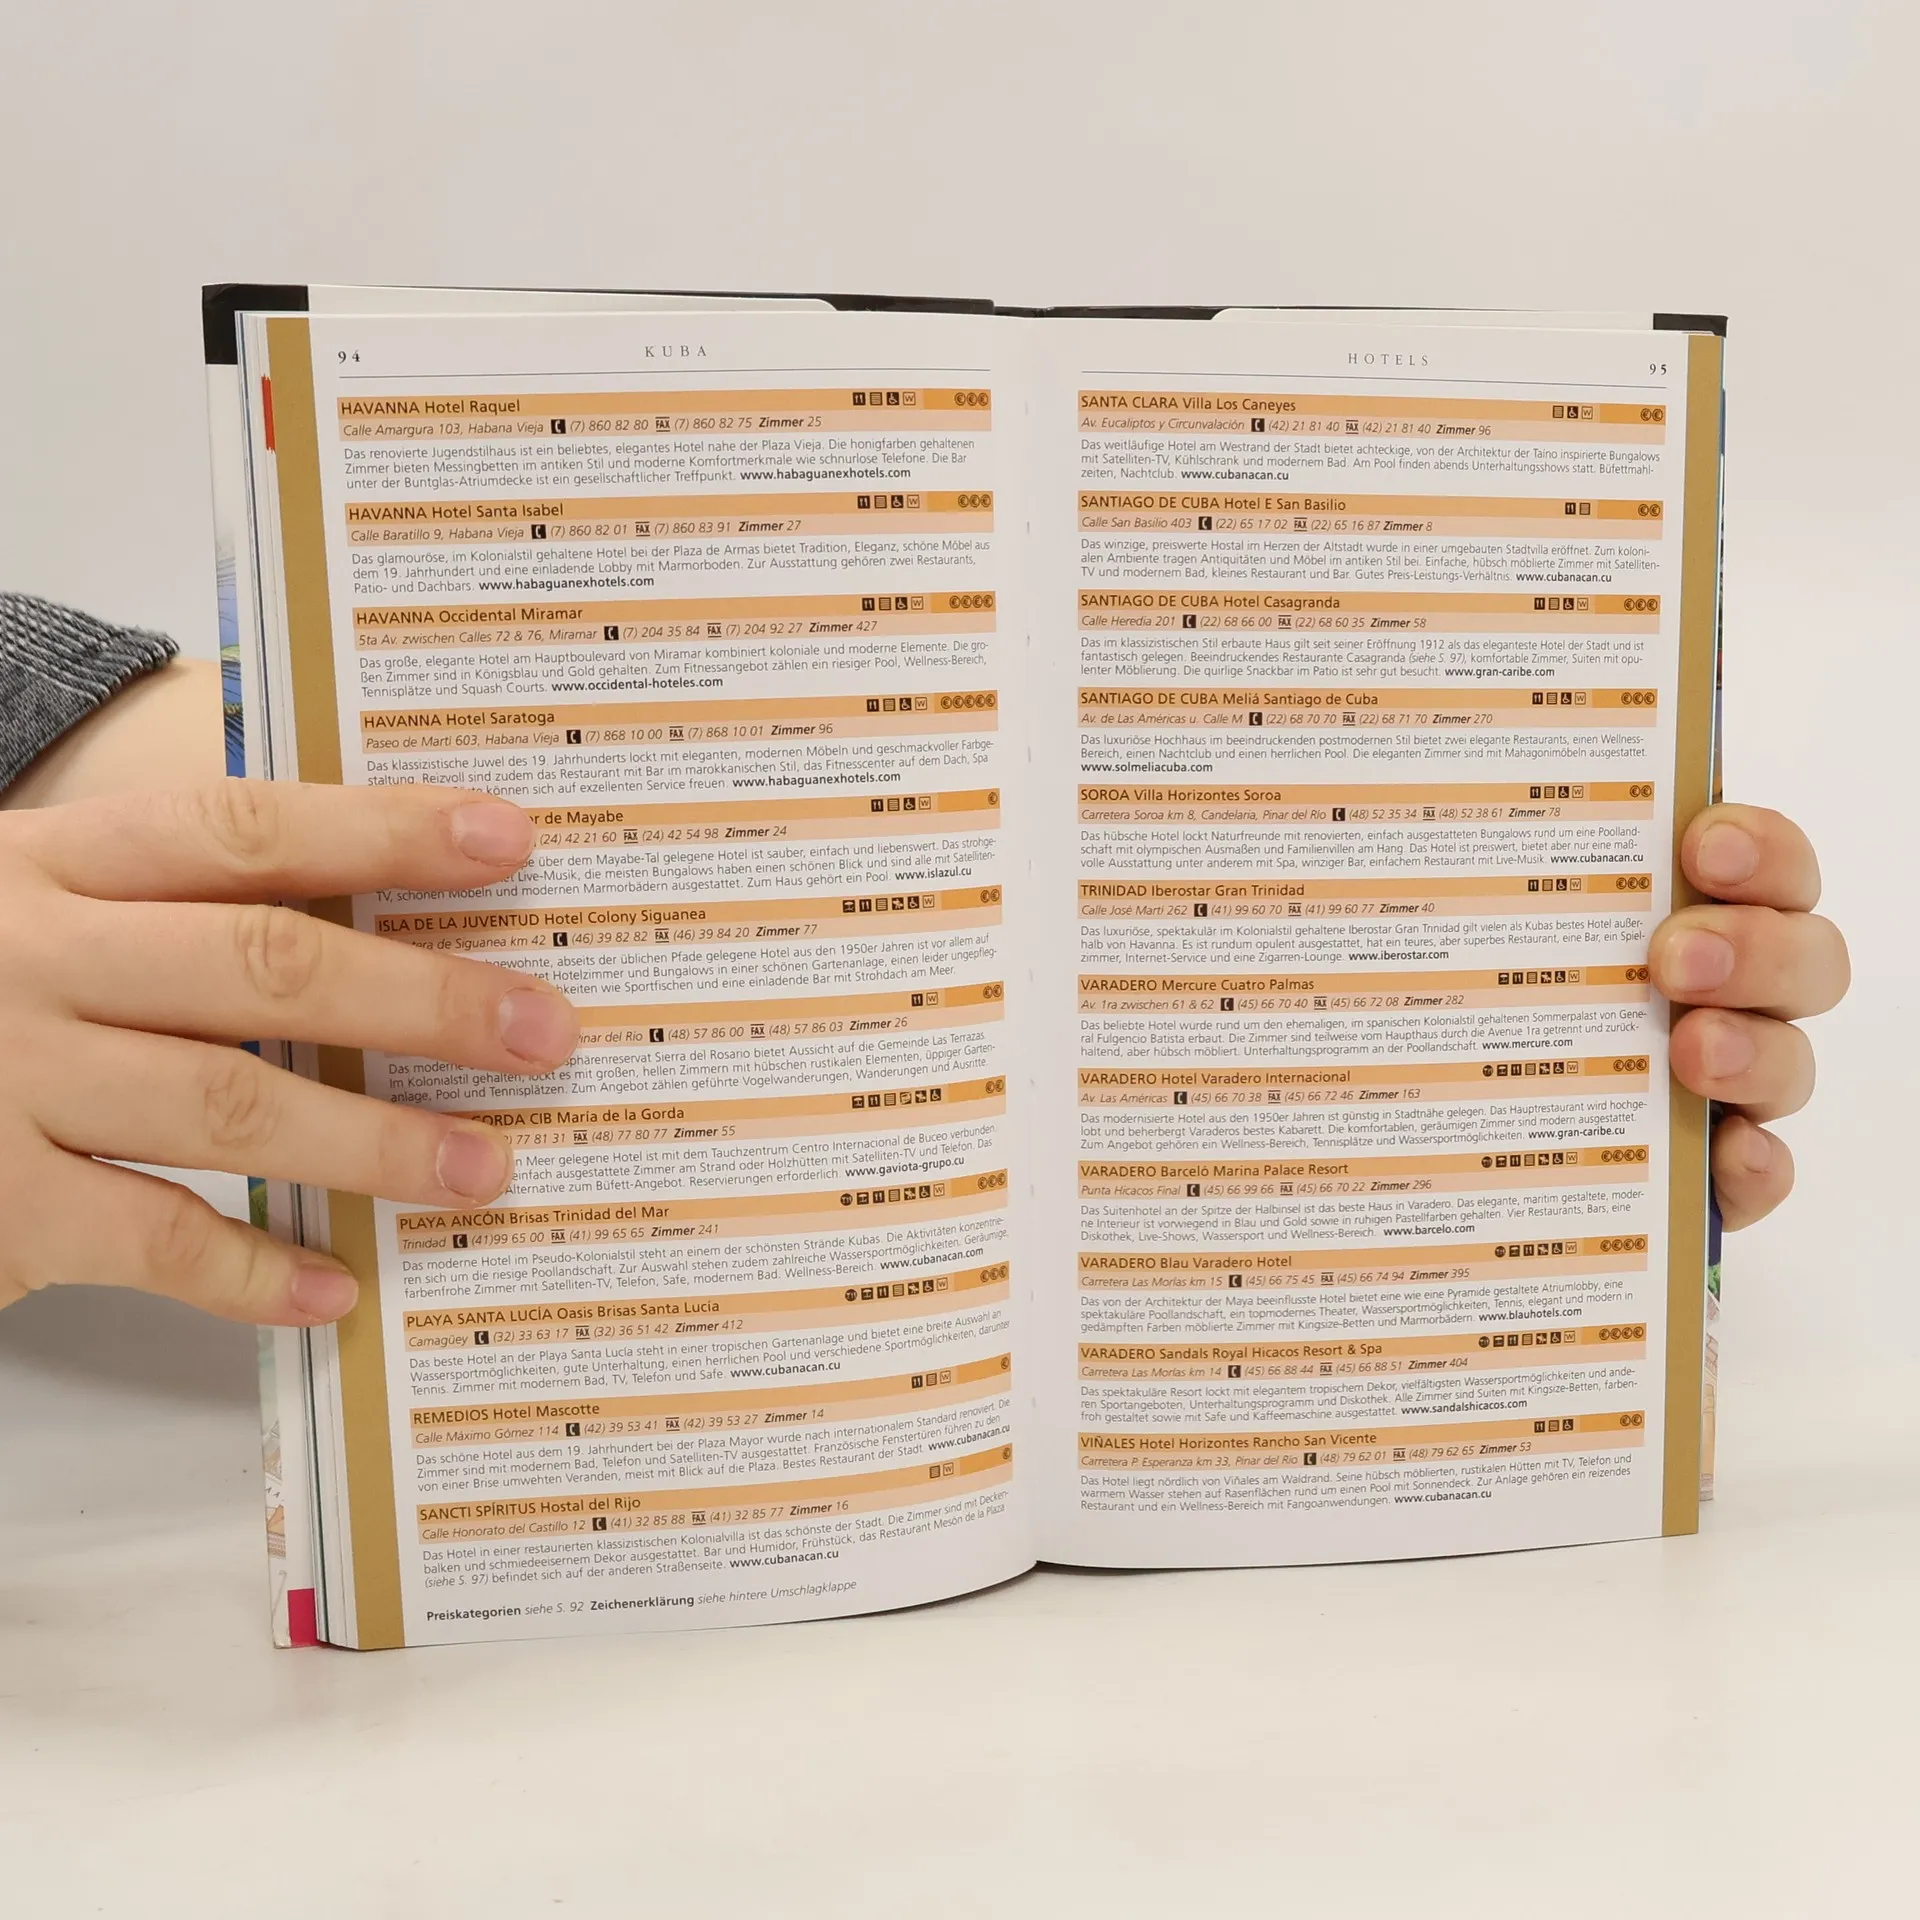 94
KUBA
HAVANNA Hotel Raquel
Calle Amargura 103, Habana Vieja (7) 860 82 80 FAX (7) 860 82 75 Zimmer 25
Das renovierte Jugendstilhaus ist ein beliebtes, elegantes Hotel nahe der Plaza Vieja. Die honigfarben gehaltenen
Zimmer bieten Messingbetten im antiken Stil und moderne Komfortmerkmale wie schnurlose Telefone. Die Bar
unter der Buntglas-Atriumdecke ist ein gesellschaftlicher Treffpunkt. www.habaguanexhotels.com
HAVANNA Hotel Santa Isabel
Calle Baratillo 9, Habana Vieja (7) 860 82 01 FAX (7) 860 83 91 Zimmer 27
Das glamouröse, im Kolonialstil gehaltene Hotel bei der Plaza de Armas bietet Tradition, Eleganz, schöne Möbel aus
dem 19. Jahrhundert und eine einladende Lobby mit Marmorboden. Zur Ausstattung gehören zwei Restaurants,
Patio- und Dachbars. www.habaguanexhotels.com
HAVANNA Occidental Miramar
5ta Av. zwischen Calles 72 & 76, Miramar (7) 204 35 84 FAX (7) 204 92 27 Zimmer 427
Das große, elegante Hotel am Hauptboulevard von Miramar kombiniert koloniale und moderne Elemente. Die gro-
ßen Zimmer sind in Königsblau und Gold gehalten. Zum Fitnessangebot zählen ein riesiger Pool, Wellness-Bereich,
Tennisplätze und Squash Courts. www.occidental-hoteles.com
HAVANNA Hotel Saratoga
Paseo de Martí 603, Habana Vieja (7) 868 10 00 FAX (7) 868 10 01 Zimmer 96
Das klassizistische Juwel des 19. Jahrhunderts lockt mit eleganten, modernen Möbeln und geschmackvoller Farbge-
staltung. Reizvoll sind zudem das Restaurant mit Bar im marokkanischen Stil, das Fitnesscenter auf dem Dach, Spa
können sich auf exzellenten Service freuen. www.habaguanexhotels.com
de Mayabe
(24) 42 21 60 FAX (24) 42 54 98 Zimmer 24
über dem Mayabe-Tal gelegene Hotel ist sauber, einfach und liebenswert. Das strohge-
Live-Musik, die meisten Bungalows haben einen schönen Blick und sind alle mit Satelliten-
TV, schönen Möbeln und modernen Marmorbädern ausgestattet. Zum Haus gehört ein Pool. www.islazul.cu
ISLA DE LA JUVENTUD Hotel Colony Siguanea
de Siguanea km 42 (46) 39 82 82 FAX (46) 39 84 20 Zimmer 77
abseits der üblichen Pfade gelegene Hotel aus den 1950er Jahren ist vor allem auf
Hotelzimmer und Bungalows in einer schönen Gartenanlage, einen leider ungepfleg-
wie Sportfischen und eine einladende Bar mit Strohdach am Meer.
del Río (48) 57 86 00 FAX (48) 57 86 03 Zimmer 26
Das moderne Sierra del Rosario bietet Aussicht auf die Gemeinde Las Terrazas.
Im Kolonialstil gehalten, lockt es mit großen, hellen Zimmern mit hübschen rustikalen Elementen, üppiger Garten-
anlage, Pool und Tennisplätzen. Zum Angebot zählen geführte Vogelwanderungen, Wanderungen und Ausritte.
GORDA CIB María de la Gorda
77 81 31 FAX (48) 77 80 77 Zimmer 55
Meer gelegene Hotel ist mit dem Tauchzentrum Centro Internacional de Buceo verbunden.
einfach ausgestattete Zimmer am Strand oder Holzhütten mit Satelliten-TV und Telefon. Das
Alternative zum Büfett-Angebot. Reservierungen erforderlich. www.gaviota-grupo.cu
PLAYA ANCÓN Brisas Trinidad del Mar
Trinidad (41)99 65 00 FAX (41) 99 65 65 Zimmer 241
Das moderne Hotel im Pseudo-Kolonialstil steht an einem der schönsten Strände Kubas. Die Aktivitäten konzentrie-
ren sich um die riesige Poollandschaft. Zur Auswahl stehen zudem zahlreiche Wassersportmöglichkeiten. Geräumige,
farbenfrohe Zimmer mit Satelliten-TV, Telefon, Safe, modernem Bad. Wellness-Bereich. www.cubanacan.com
PLAYA SANTA LUCÍA Oasis Brisas Santa Lucía
Camagüey (32) 33 63 17 FAX (32) 36 51 42 Zimmer 412
Das beste Hotel an der Playa Santa Lucía steht in einer tropischen Gartenanlage und bietet eine breite Auswahl an
Wassersportmöglichkeiten, gute Unterhaltung, einen herrlichen Pool und verschiedene Sportmöglichkeiten, darunter
Tennis. Zimmer mit modernem Bad, TV, Telefon und Safe. www.cubanacan.cu
REMEDIOS Hotel Mascotte
Calle Máximo Gómez 114 (42) 39 53 41 FAX (42) 39 53 27 Zimmer 14
Das schöne Hotel aus dem 19. Jahrhundert bei der Plaza Mayor wurde nach internationalem Standard renoviert. Die
Zimmer sind mit modernem Bad, Telefon und Satelliten-TV ausgestattet. Französische Fenstertüren führen zu den
von einer Brise umwehten Veranden, meist mit Blick auf die Plaza. Bestes Restaurant der Stadt. www.cubanacan.cu
SANCTI SPÍRITUS Hostal del Rijo
Calle Honorato del Castillo 12 (41) 32 85 88 FAX (41) 32 85 77 Zimmer 16
Das Hotel in einer restaurierten klassizistischen Kolonialvilla ist das schönste der Stadt. Die Zimmer sind mit Decken-
balken und schmiedeeisernem Dekor ausgestattet. Bar und Humidor, Frühstück, das Restaurant Mesón de la Plaza
(siehe S. 97) befindet sich auf der anderen Straßenseite. www.cubanacan.cu
Preiskategorien siehe S. 92 Zeichenerklärung siehe hintere Umschlagklappe
HOTELS
95
SANTA CLARA Villa Los Caneyes
Av. Eucaliptos y Circunvalación (42) 21 81 40 FAX (42) 21 81 40 Zimmer 96
Das weitläufige Hotel am Westrand der Stadt bietet achteckige, von der Architektur der Taíno inspirierte Bungalows
mit Satelliten-TV, Kühlschrank und modernem Bad. Am Pool finden abends Unterhaltungsshows statt. Büfettmahl-
zeiten, Nachtclub. www.cubanacan.cu
SANTIAGO DE CUBA Hotel E San Basilio
Calle San Basilio 403 (22) 65 17 02 FAX (22) 65 16 87 Zimmer 8
Das winzige, preiswerte Hostal im Herzen der Altstadt wurde in einer umgebauten Stadtvilla eröffnet. Zum koloni-
alen Ambiente tragen Antiquitäten und Möbel im antiken Stil bei. Einfache, hübsch möblierte Zimmer mit Satelliten-
TV und modernem Bad, kleines Restaurant und Bar. Gutes Preis-Leistungs-Verhältnis. www.cubanacan.cu
SANTIAGO DE CUBA Hotel Casagranda
Calle Heredia 201 (22) 68 66 00 FAX (22) 68 60 35 Zimmer 58
Das im klassizistischen Stil erbaute Haus gilt seit seiner Eröffnung 1912 als das eleganteste Hotel der Stadt und ist
fantastisch gelegen. Beeindruckendes Restaurante Casagranda (siehe S. 97), komfortable Zimmer, Suiten mit opu-
lenter Möblierung. Die quirlige Snackbar im Patio ist sehr gut besucht. www.gran-caribe.com
SANTIAGO DE CUBA Meliá Santiago de Cuba
Av. de Las Américas u. Calle M (22) 68 70 70 FAX (22) 68 71 70 Zimmer 270
Das luxuriöse Hochhaus im beeindruckenden postmodernen Stil bietet zwei elegante Restaurants, einen Wellness-
Bereich, einen Nachtclub und einen herrlichen Pool. Die eleganten Zimmer sind mit Mahagonimöbeln ausgestattet.
www.solmeliacuba.com
SOROA Villa Horizontes Soroa
Carretera Soroa km 8, Candelaria, Pinar del Río (48) 52 35 34 FAX (48) 52 38 61 Zimmer 78
Das hübsche Hotel lockt Naturfreunde mit renovierten, einfach ausgestatteten Bungalows rund um eine Poolland-
schaft mit olympischen Ausmaßen und Familienvillen am Hang. Das Hotel ist preiswert, bietet aber nur eine maß-
volle Ausstattung unter anderem mit Spa, winziger Bar, einfachem Restaurant mit Live-Musik. www.cubanacan.cu
TRINIDAD Iberostar Gran Trinidad
Calle José Martí 262 (41) 99 60 70 FAX (41) 99 60 77 Zimmer 40
Das luxuriöse, spektakulär im Kolonialstil gehaltene Iberostar Gran Trinidad gilt vielen als Kubas bestes Hotel außer-
halb von Havanna. Es ist rundum opulent ausgestattet, hat ein teures, aber superbes Restaurant, eine Bar, ein Spiel-
zimmer, Internet-Service und eine Zigarren-Lounge. www.iberostar.com
VARADERO Mercure Cuatro Palmas
Av. 1ra zwischen 61 & 62 (45) 66 70 40 FAX (45) 66 72 08 Zimmer 282
Das beliebte Hotel wurde rund um den ehemaligen, im spanischen Kolonialstil gehaltenen Sommerpalast von Gene-
ral Fulgencio Batista erbaut. Die Zimmer sind teilweise vom Haupthaus durch die Avenue 1ra getrennt und zurück-
haltend, aber hübsch möbliert. Unterhaltungsprogramm an der Poollandschaft. www.mercure.com
VARADERO Hotel Varadero Internacional
Av. Las Américas (45) 66 70 38 FAX (45) 66 72 46 Zimmer 163
Das modernisierte Hotel aus den 1950er Jahren ist günstig in Stadtnähe gelegen. Das Hauptrestaurant wird hochge-
lobt und beherbergt Varaderos bestes Kabarett. Die komfortablen, geräumigen Zimmer sind modern ausgestattet.
Zum Angebot gehören ein Wellness-Bereich, Tennisplätze und Wassersportmöglichkeiten. www.gran-caribe.cu
VARADERO Barceló Marina Palace Resort
Punta Hicacos Final (45) 66 99 66 FAX (45) 66 70 22 Zimmer 296
Das Suitenhotel an der Spitze der Halbinsel ist das beste Haus in Varadero. Das elegante, maritim gestaltete, moder-
ne Interieur ist vorwiegend in Blau und Gold sowie in ruhigen Pastellfarben gehalten. Vier Restaurants, Bars, eine
Diskothek, Live-Shows, Wassersport und Wellness-Bereich. www.barcelo.com
VARADERO Blau Varadero Hotel
Carretera Las Morlas km 15 (45) 66 75 45 FAX (45) 66 74 94 Zimmer 395
Das von der Architektur der Maya beeinflusste Hotel bietet eine wie eine Pyramide gestaltete Atriumlobby, eine
spektakuläre Poollandschaft, ein topmodernes Theater, Wassersportmöglichkeiten, Tennis, elegant und modern in
gedämpften Farben möblierte Zimmer mit Kingsize-Betten und Marmorbädern. www.blauhotels.com
VARADERO Sandals Royal Hicacos Resort & Spa
Carretera Las Morlas km 14 (45) 66 88 44 FAX (45) 66 88 51 Zimmer 404
Das spektakuläre Resort lockt mit elegantem tropischem Dekor, vielfältigsten Wassersportmöglichkeiten und ande-
ren Sportangeboten, Unterhaltungsprogramm und Diskothek. Alle Zimmer sind Suiten mit Kingsize-Betten, farben-
froh gestaltet sowie mit Safe und Kaffeemaschine ausgestattet. www.sandalshicacos.com
VIÑALES Hotel Horizontes Rancho San Vicente
Carretera P. Esperanza km 33, Pinar del Río (48) 79 62 01 FAX (48) 79 62 65 Zimmer 53
Das Hotel liegt nördlich von Viñales am Waldrand. Seine hübsch möblierten, rustikalen Hütten mit TV, Telefon und
warmem Wasser stehen auf Rasenflächen rund um einen Pool mit Sonnendeck. Zur Anlage gehören ein reizendes
Restaurant und ein Wellness-Bereich mit Fangoanwendungen. www.cubanacan.cu